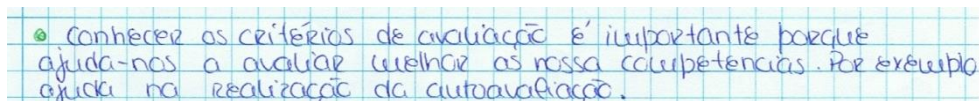 • Conhecer os critérios de avaliação é importante porque
ajuda-nos a avaliar melhor as nossa competências. Por exemplo
ajuda na realização da autoavaliação.